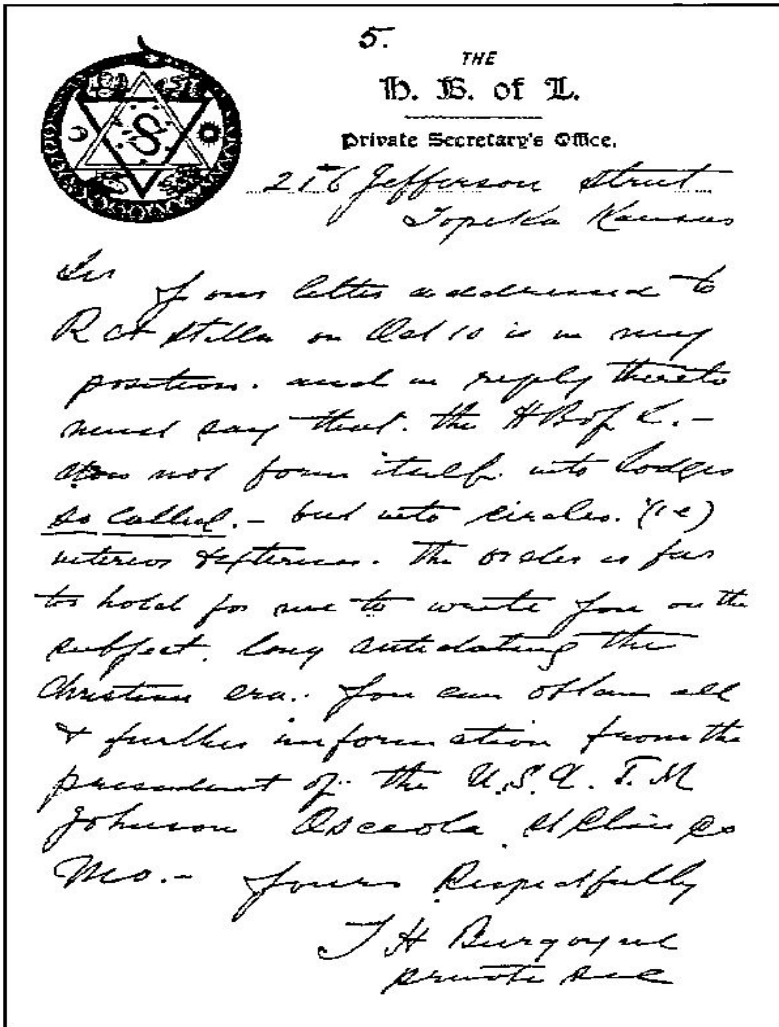 5.
THE
H. B. of L.
Private Secretary's Office.
216 Jefferson Street
Topeka Kansas
Sir
Your letter addressed to
on Oct 10 is in my
position. and in reply thereto
must say that. the H B of L. -
does not form itself. into lodges
so called. - but into circles. (i e)
interior & exterior. The order is far
to hold for me to write you on the
subject. long antidating the
Christian era. You can obtain all
& further information from the
president of. the U.S.A. T. M
Johnson Osceola St Clair Co
Mo. - Yours Respectfully
T H Burgoyne
private sec